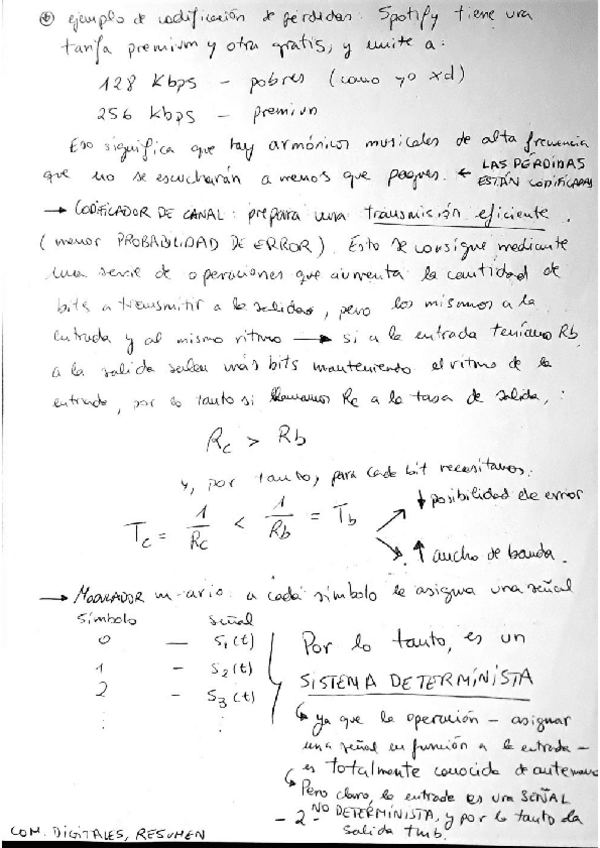 ⊛ ejemplo de codificación de pérdidas: Spotify tiene una
tarifa premium y otra gratis, y emite a:
128 Kbps – pobres (como yo xd)
256 Kbps – premium
Eso significa que hay armónicos musicales de alta frecuencia
que no se escucharán a menos que pagues. ← LAS PÉRDIDAS
ESTÁN CODIFICADAS
→ CODIFICADOR DE CANAL: prepara una transmisión eficiente.
(menor PROBABILIDAD DE ERROR). Esto se consigue mediante
una serie de operaciones que aumenta la cantidad de
bits a transmitir a la salida, pero los mismos a la
entrada y al mismo ritmo → si a la entrada teníamos Rb
a la salida salen más bits manteniendo el ritmo de la
entrada, por lo tanto si llamamos Rc a la tasa de salida,:
Rc > Rb
y, por tanto, para cada bit necesitamos:
Tc = 1/Rc < 1/Rb = Tb
↓ posibilidad de error
↑ ancho de banda.
→ MODULADOR m-ario: a cada símbolo le asigna una señal
Símbolo señal
0 – S1(t)
1 – S2(t)
2 – S3(t)
⋮ ⋮
Por lo tanto, es un
SISTEMA DETERMINISTA
↳ ya que la operación – asignar
una señal en función a la entrada –
es totalmente conocida de antemano
↳ Pero claro, la entrada es una SEÑAL
NO DETERMINISTA, y por lo tanto la
salida tmb.
- 2 -
COM. DIGITALES, RESUMEN